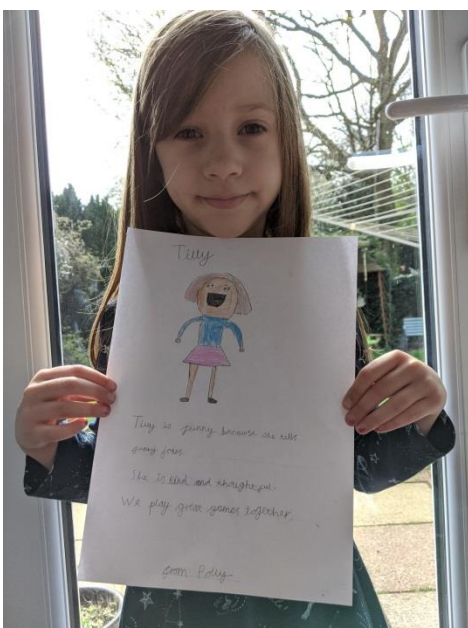 Tilly
Tilly is funny because she tells
funny jokes.
She is kind and thoughtful.
We play great games together.
from Polly